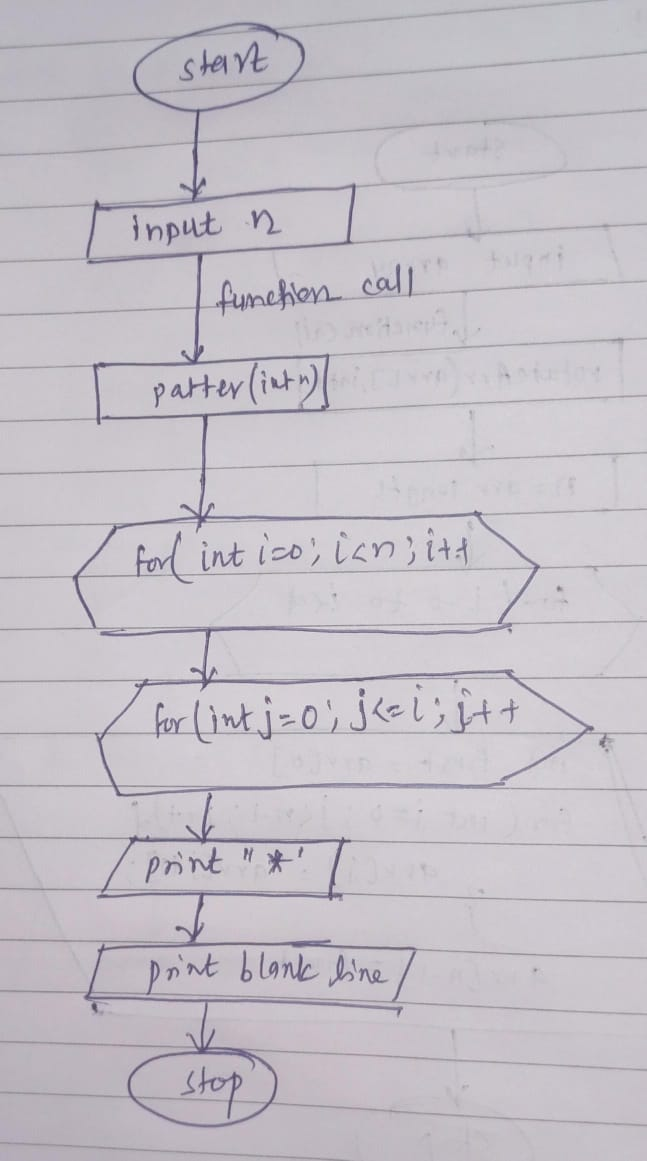 start
input n
function call
patter(int n)
for( int i=0; i<n; i++
for(int j=0; j<=i; j++
print "*'
print blank line
stop